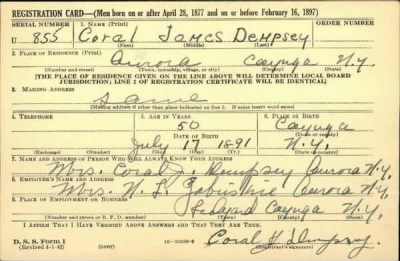 REGISTRATION CARD—(Men born on or after April 28, 1877 and on or before February 16, 1897)
SERIAL NUMBER 1. NAME (Print) ORDER NUMBER
U 855 Coral James Dempsey
(First) (Middle) (Last)
2. PLACE OF RESIDENCE (Print)
Aurora Cayuga N.Y.
(Number and street) (Town, township, village, or city) (County) (State)
[THE PLACE OF RESIDENCE GIVEN ON THE LINE ABOVE WILL DETERMINE LOCAL BOARD
JURISDICTION; LINE 2 OF REGISTRATION CERTIFICATE WILL BE IDENTICAL]
3. MAILING ADDRESS
Same
[Mailing address if other than place indicated on line 2. If same insert word same]
4. TELEPHONE 5. AGE IN YEARS 6. PLACE OF BIRTH
50 Cayuga
DATE OF BIRTH
July 17 1891 N.Y.
(Exchange) (Number) (Mo.) (Day) (Yr.) (State or country)
7. NAME AND ADDRESS OF PERSON WHO WILL ALWAYS KNOW YOUR ADDRESS
Mrs. Coral J. Dempsey Aurora N.Y.
8. EMPLOYER'S NAME AND ADDRESS
Mrs. N. L. Aurora N.Y.
9. PLACE OF EMPLOYMENT OR BUSINESS
Cayuga N.Y.
(Number and street or R. F. D. number) (Town) (County) (State)
I AFFIRM THAT I HAVE VERIFIED ABOVE ANSWERS AND THAT THEY ARE TRUE.
D. S. S. Form 1
(Revised 4-1-42) (over) Coral J Dempsey
(Registrant's signature)